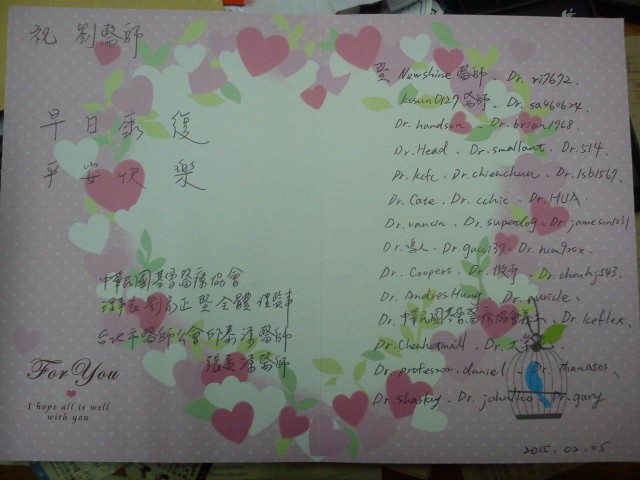 祝 劉醫師
早日康復
平安快樂
中華民國基層醫療協會
理事長 劉 正 暨全體理監事
台北市醫師公會 醫師
張 醫師
For You
I hope all is well
with you
暨 Newshine 醫師、Dr. ri7672、
kusun0127 醫師、Dr. sa460624、
Dr. handson、Dr. brian1968、
Dr. Head、Dr. smallant、Dr. 514、
Dr. kcfc、Dr. chienchun、Dr. lsb1569、
Dr. Cate、Dr. cchic、Dr. HUA、
Dr. vancin、Dr. superdog、Dr. jameson1031
Dr. 人、Dr. gucci39、Dr. hcagrox、
Dr. Coopers、Dr. 、Dr. chouhj543、
Dr. Andres Hung、Dr. auricle、
Dr. 中華民國基層醫療協會 、Dr. keflex、
Dr. Chenhotmall、Dr.
Dr. professor.daniel、Dr. thanatos、
Dr. sharkey、Dr. johntho、Dr. gary
2015.02.05